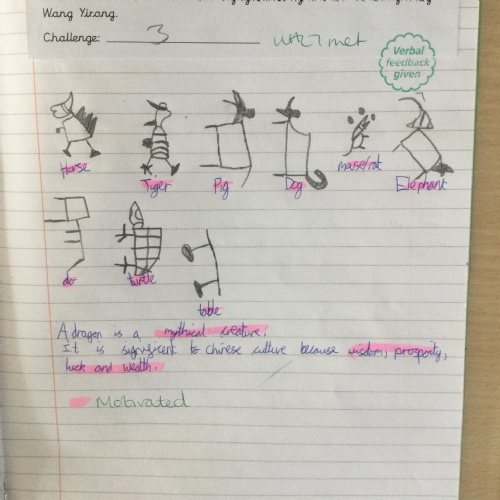 Wang Yirong.
Challenge: 3 WALT met
Verbal
feedback
given
Horse Tiger Pig Dog mouse/rat Elephant
turtle
table
A dragon is a mythical creature.
It is significent to Chinese culture because wisdom, prosperity,
luck and wealth.
Motivated